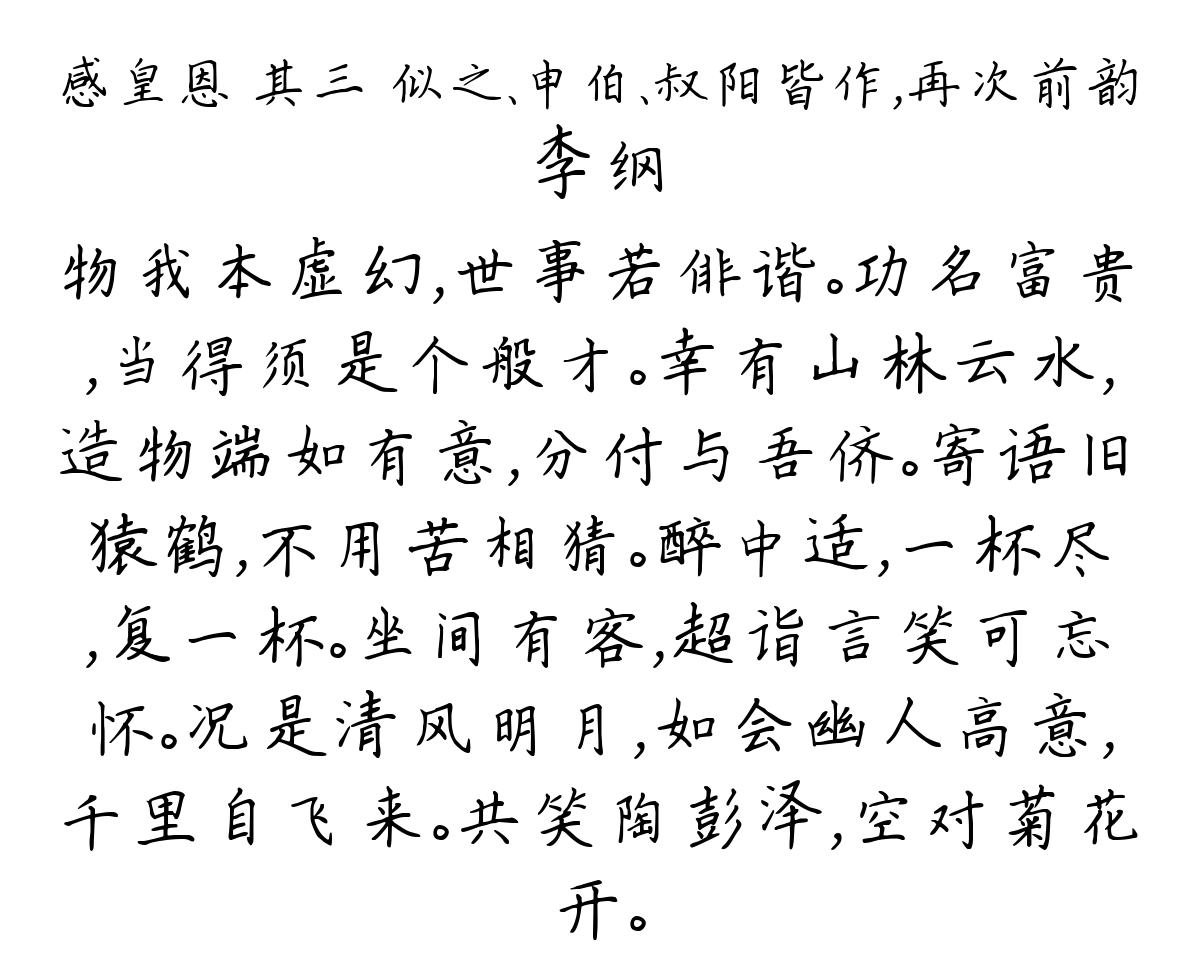 感皇恩 其三 似之、申伯、叔阳皆作,再次前韵
李纲
物我本虚幻,世事若俳谐。功名富贵
,当得须是个般才。幸有山林云水,
造物端如有意,分付与吾侪。寄语旧
猿鹤,不用苦相猜。醉中适,一杯尽
,复一杯。坐间有客,超诣言笑可忘
怀。况是清风明月,如会幽人高意,
千里自飞来。共笑陶彭泽,空对菊花
开。